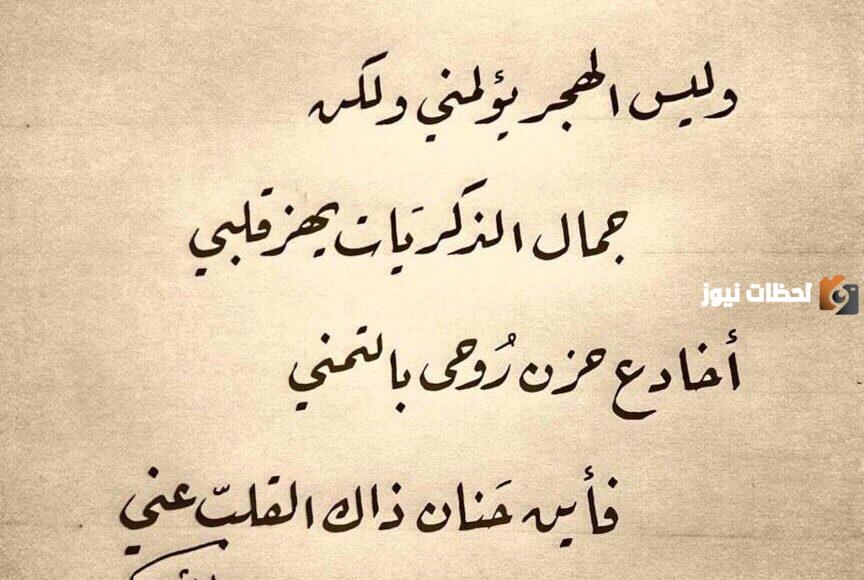 وليس الهجر يؤلمني ولكن
جمال الذكريَات يهز قلبي
لحظات نيوز
أخادع حزن رُوحى بالتمني
فأين حَنان ذاك القلبّ عني